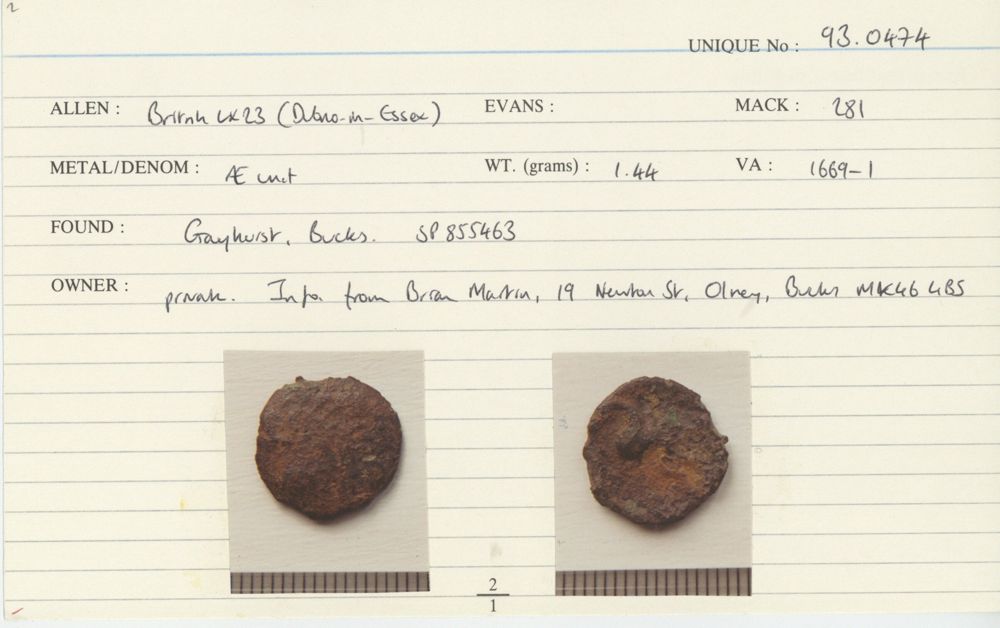 UNIQUE No : 93.0474
ALLEN : British LX23 (Dubno-in-Essex) EVANS : MACK : 281
METAL/DENOM : Æ unit WT. (grams) : 1.44 VA : 1669-1
FOUND : Gayhurst, Bucks. SP 855463
OWNER : private. Info. from Brian Martin, 19 Newton St, Olney, Bucks MK46 4BS
2
1